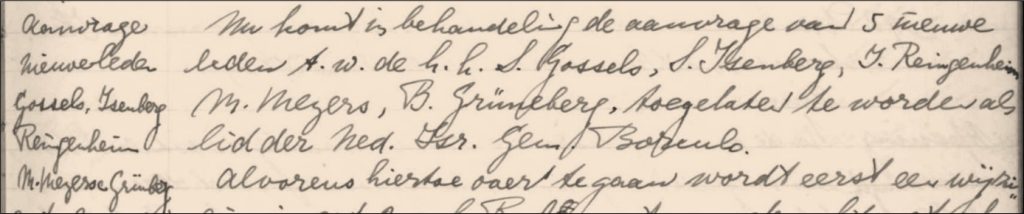 Aanvrage Nu komt in behandeling de aanvrage van 5 nieuwe
nieuwe leden leden t.w. de h.h. S. Gossels, S. Isenberg, J. Reingenheim
Gossels, Isenberg M. Meyers, B. Grüneberg, toegelaten te worden als
Reingenheim lid der Ned. Isr. Gem Borculo.
M. Meyers Alvorens hiertoe over te gaan wordt eerst een